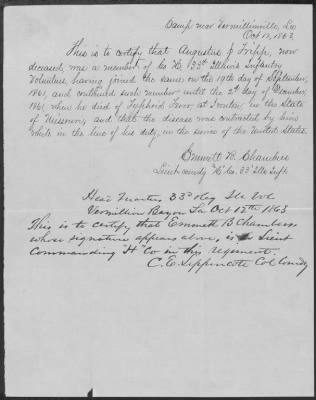 Camp near Vermillionville, La
Oct 12, 1863
This is to certify that Augustus J Tripp, now
deceased, was a member of Co H. 33d Illinois Infantry
Volunteers, having joined the same on the 19th day of September,
1861, and continued such member until the 2d day of December,
1861 when he died of Typhoid Fever, at Ironton, in the State
of Missouri, and that the disease was contracted by him
while in the line of his duty, in the service of the United States.
Emmett B. Chambers
Lieut comdg "H" Co. 33d Ills Inft.
Head Quarters 33d Reg Ill Vol
Vermillion Bayou La Oct 15th 1863
This is to certify that Emmett B Chambers
whose signature appears above, is Lieut
Commanding "H" Co in this regiment.
C. E. Lippincott Col Comdg